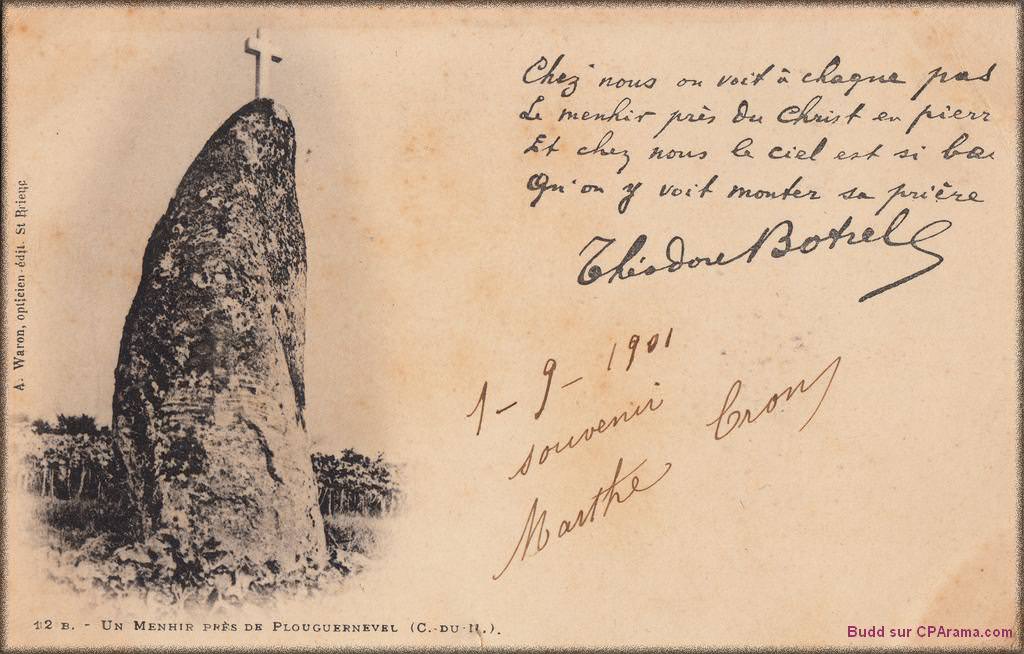 Chez nous on voit à chaque pas
Le menhir près du Christ en pierr
Et chez nous le ciel est si bas
Qu'on y voit monter sa prière
Théodore Botrel
1-9-1901
souvenir
Marthe
A. Waron, opticien-édit. St Brieuc
12 B. - UN MENHIR PRÈS DE PLOUGUERNEVEL (C.-DU-N.).
Budd sur CPArama.com